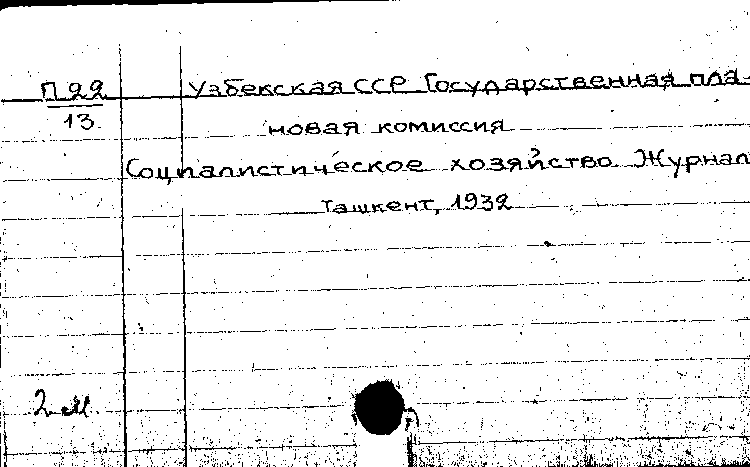 П 22 Узбекская ССР Государственная пла-
13. новая комиссия
Социалистическое хозяйство Журнал
Ташкент, 1932